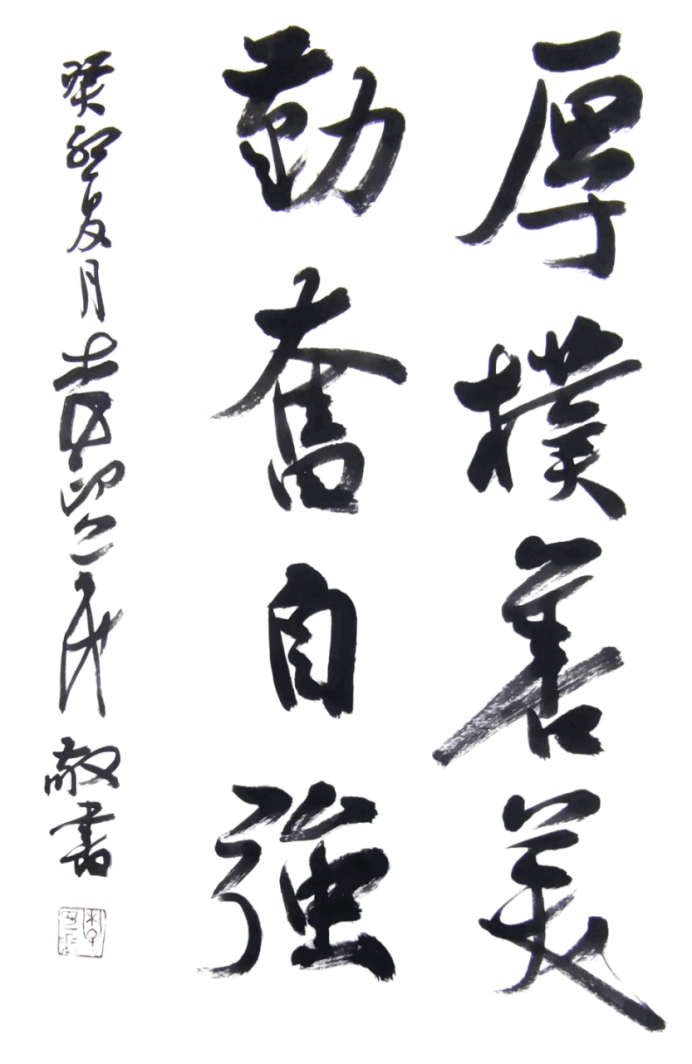 厚樸善美
勤奮自強
癸卯夏月 敬書